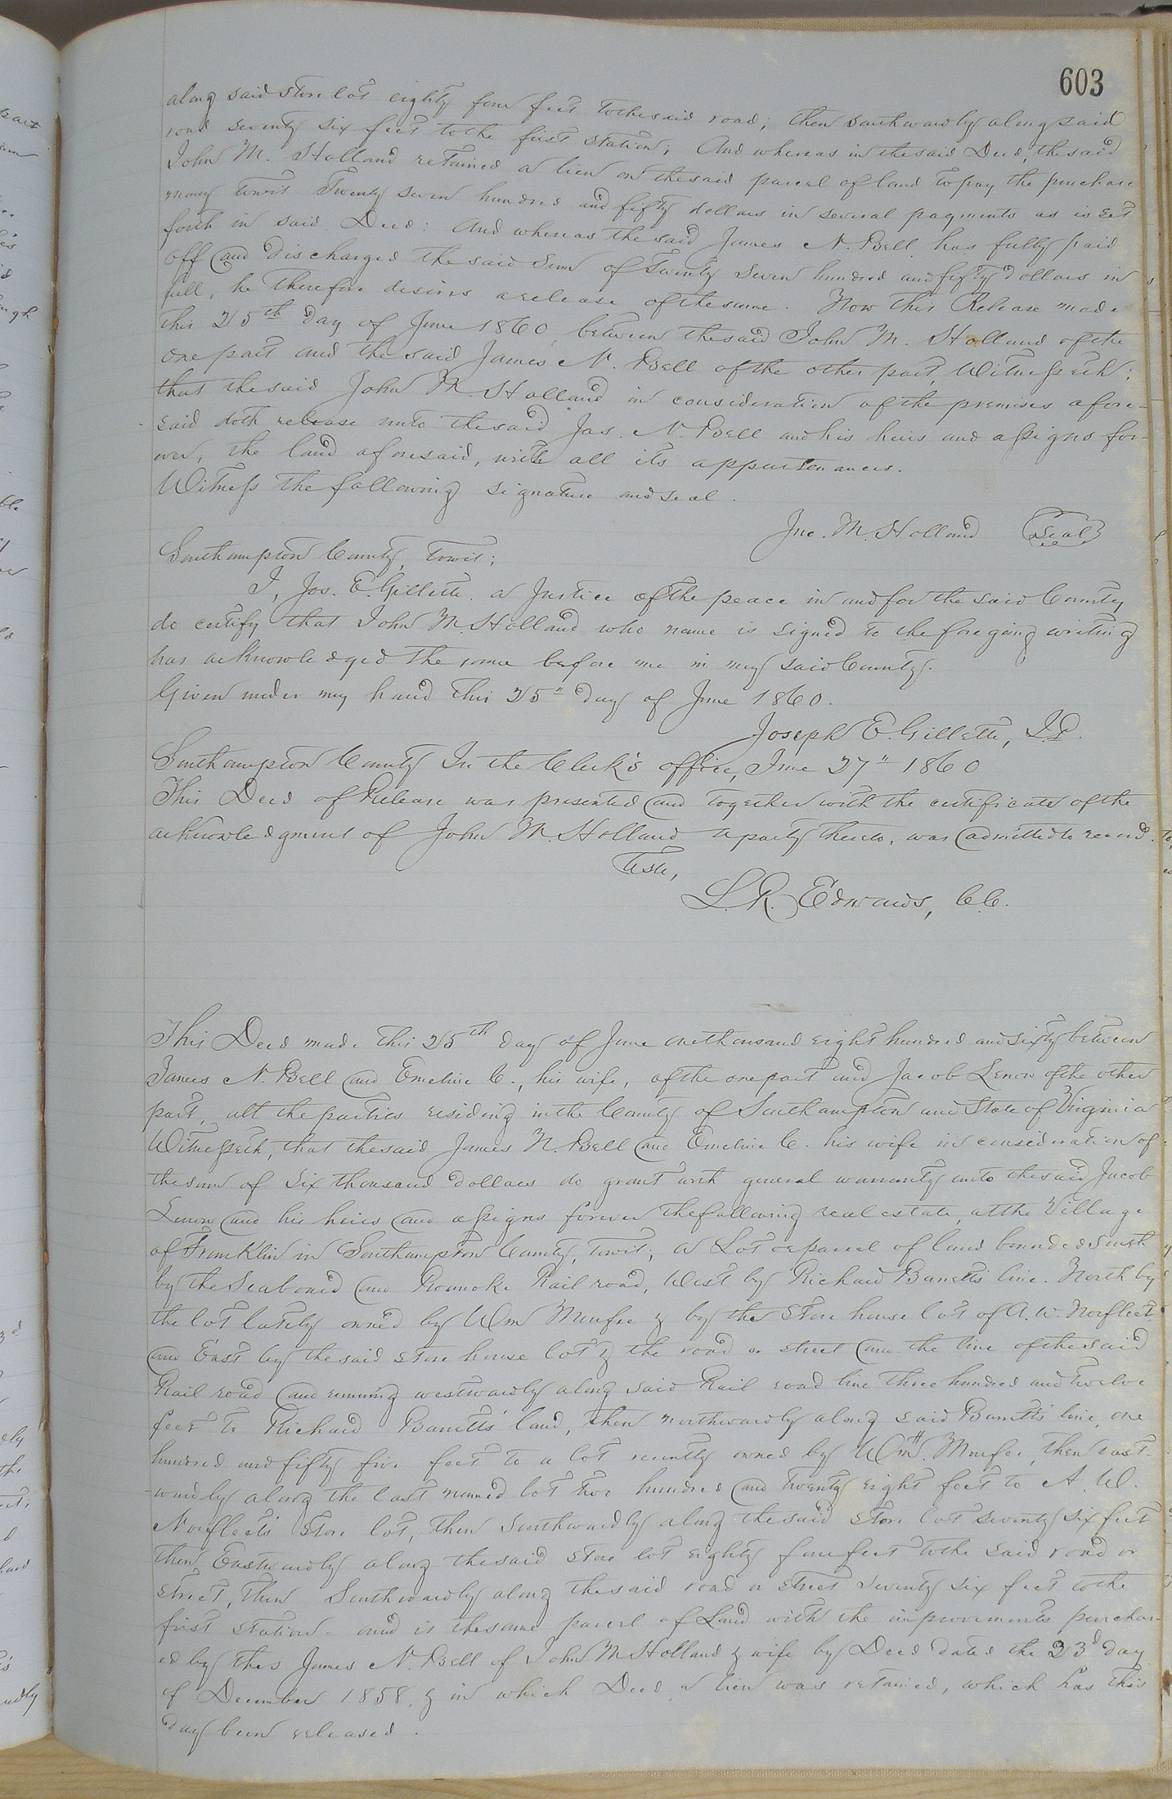 603
along said store lot eighty four feet to the said road; then Southwardly along said
road seventy six feet to the first station; And whereas in the said Deed, the said
John M. Holland retained a lien on the said parcel of land to pay the purchase
money towit Twenty seven hundred and fifty dollars in several payments as is set
forth in said Deed: And whereas the said James N. Bell has fully paid
off and discharged the said Sum of Twenty Seven hundred and fifty dollars in
full, he therefore desires a release of the same. Now this Release made
this 25th day of June 1860, between the said John M. Holland of the
one part and the said James N. Bell of the other part, Witnesseth;
that the said John M. Holland in consideration of the premises afore-
said doth release unto the said Jas. N. Bell and his heirs and assigns for-
ever, the land aforesaid, with all its appurtenances.
Witness the following signature and seal.
Jno. M. Holland (Seal)
Southampton County, towit;
I, Jos. E. Gillette a Justice of the peace in and for the said County
do certify that John M. Holland who name is signed to the foregoing writing
has acknowledged the same before me in my said County.
Given under my hand this 25" day of June 1860.
Joseph E. Gillette, J.P.
Southampton County In the Clerk's office, June 27" 1860
This Deed of Release was presented and together with the certificate of the
acknowledgment of John M. Holland a party thereto, was admitted to record.
Teste,
L. R. Edwards, C.C.
This Deed made this 25th day of June one thousand eight hundred and sixty between
James N. Bell and Emeline C., his wife, of the one part and Jacob Lenow of the other
part, all the parties residing in the County of Southampton and State of Virginia
Witnesseth, that the said James N. Bell and Emeline C. his wife in consideration of
the sum of Six thousand dollars do grant with general warranty unto the said Jacob
Lenow and his heirs and assigns forever the following real estate, at the Village
of Franklin in Southampton County, towit; a Lot or parcel of land bounded South
by the Seaboard and Roanoke Rail road, West by Richard Barretts line. North by
the lot lately owned by Wm Murfee & by the Store house lot of A. W. Norfleet
and East by the said store house lot & the road or street and the line of the said
Rail road and running westwardly along said Rail road line three hundred and twelve
feet to Richard Barretts' land, then northwardly along said Barretts' line, one
hundred and fifty five feet to a lot recently owned by Wm H. Murfee, then east-
wardly along the last named lot two hundred and twenty eight feet to A. W.
Norfleets' Store lot, then Southwardly along the said store lot seventy six feet
then Eastwardly along the said store lot eighty four feet to the said road or
street, then Southwardly along the said road or street seventy six feet to the
first station - and is the same parcel of Land with the improvements purchas-
ed by the James N. Bell of John M Holland & wife by Deed dated the 23d day
of December 1858, & in which Deed a lien was retained, which has this
day been released.